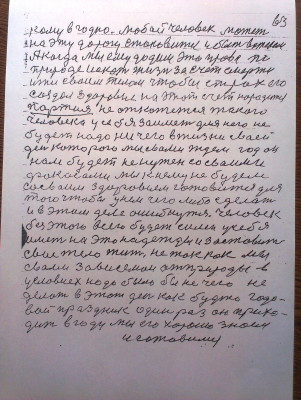 613
кому вгодно. любой человек может
на эту дорогу становится и быть
А когда мы ему дадим это право не
природе искать жизнь за счет смерти
своим телом чтобы страх его
создал здоровье на этот счет народить
партия не откажется такого
человека у себя заимеет для него не
будет надо ничего в жизни своей
ден которого мысвами ждем год он
нам будет не нужен со своими
мы к нему не будем
со своим здоровьем готовится для
того чтобы у нем чего либо сделать
и в этом деле ошибнутся. человек
без этого всего будет силен у себя
имет на это надежды и заставит
свое тело жить, не так как мы
свами зависемом от природы в
условиех надо было бы не чего не
делат в этот ден как будто годо-
вой праздник один раз он прихо-
дит вгоду мы его хорошо знаем
и готовимся